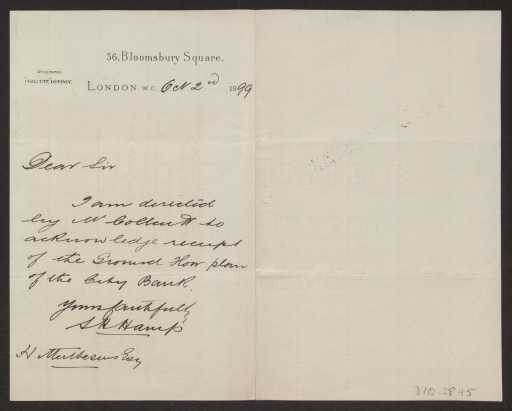 36, Bloomsbury Square,
LONDON W.C. Oct 2nd 1899
Dear Sir
I am directed
by Mr Collcutt to
acknowledge receipt
of the Ground Floor plan
of the City Bank.
Yours faithfully
S H Hamp
H Muthesius Esq